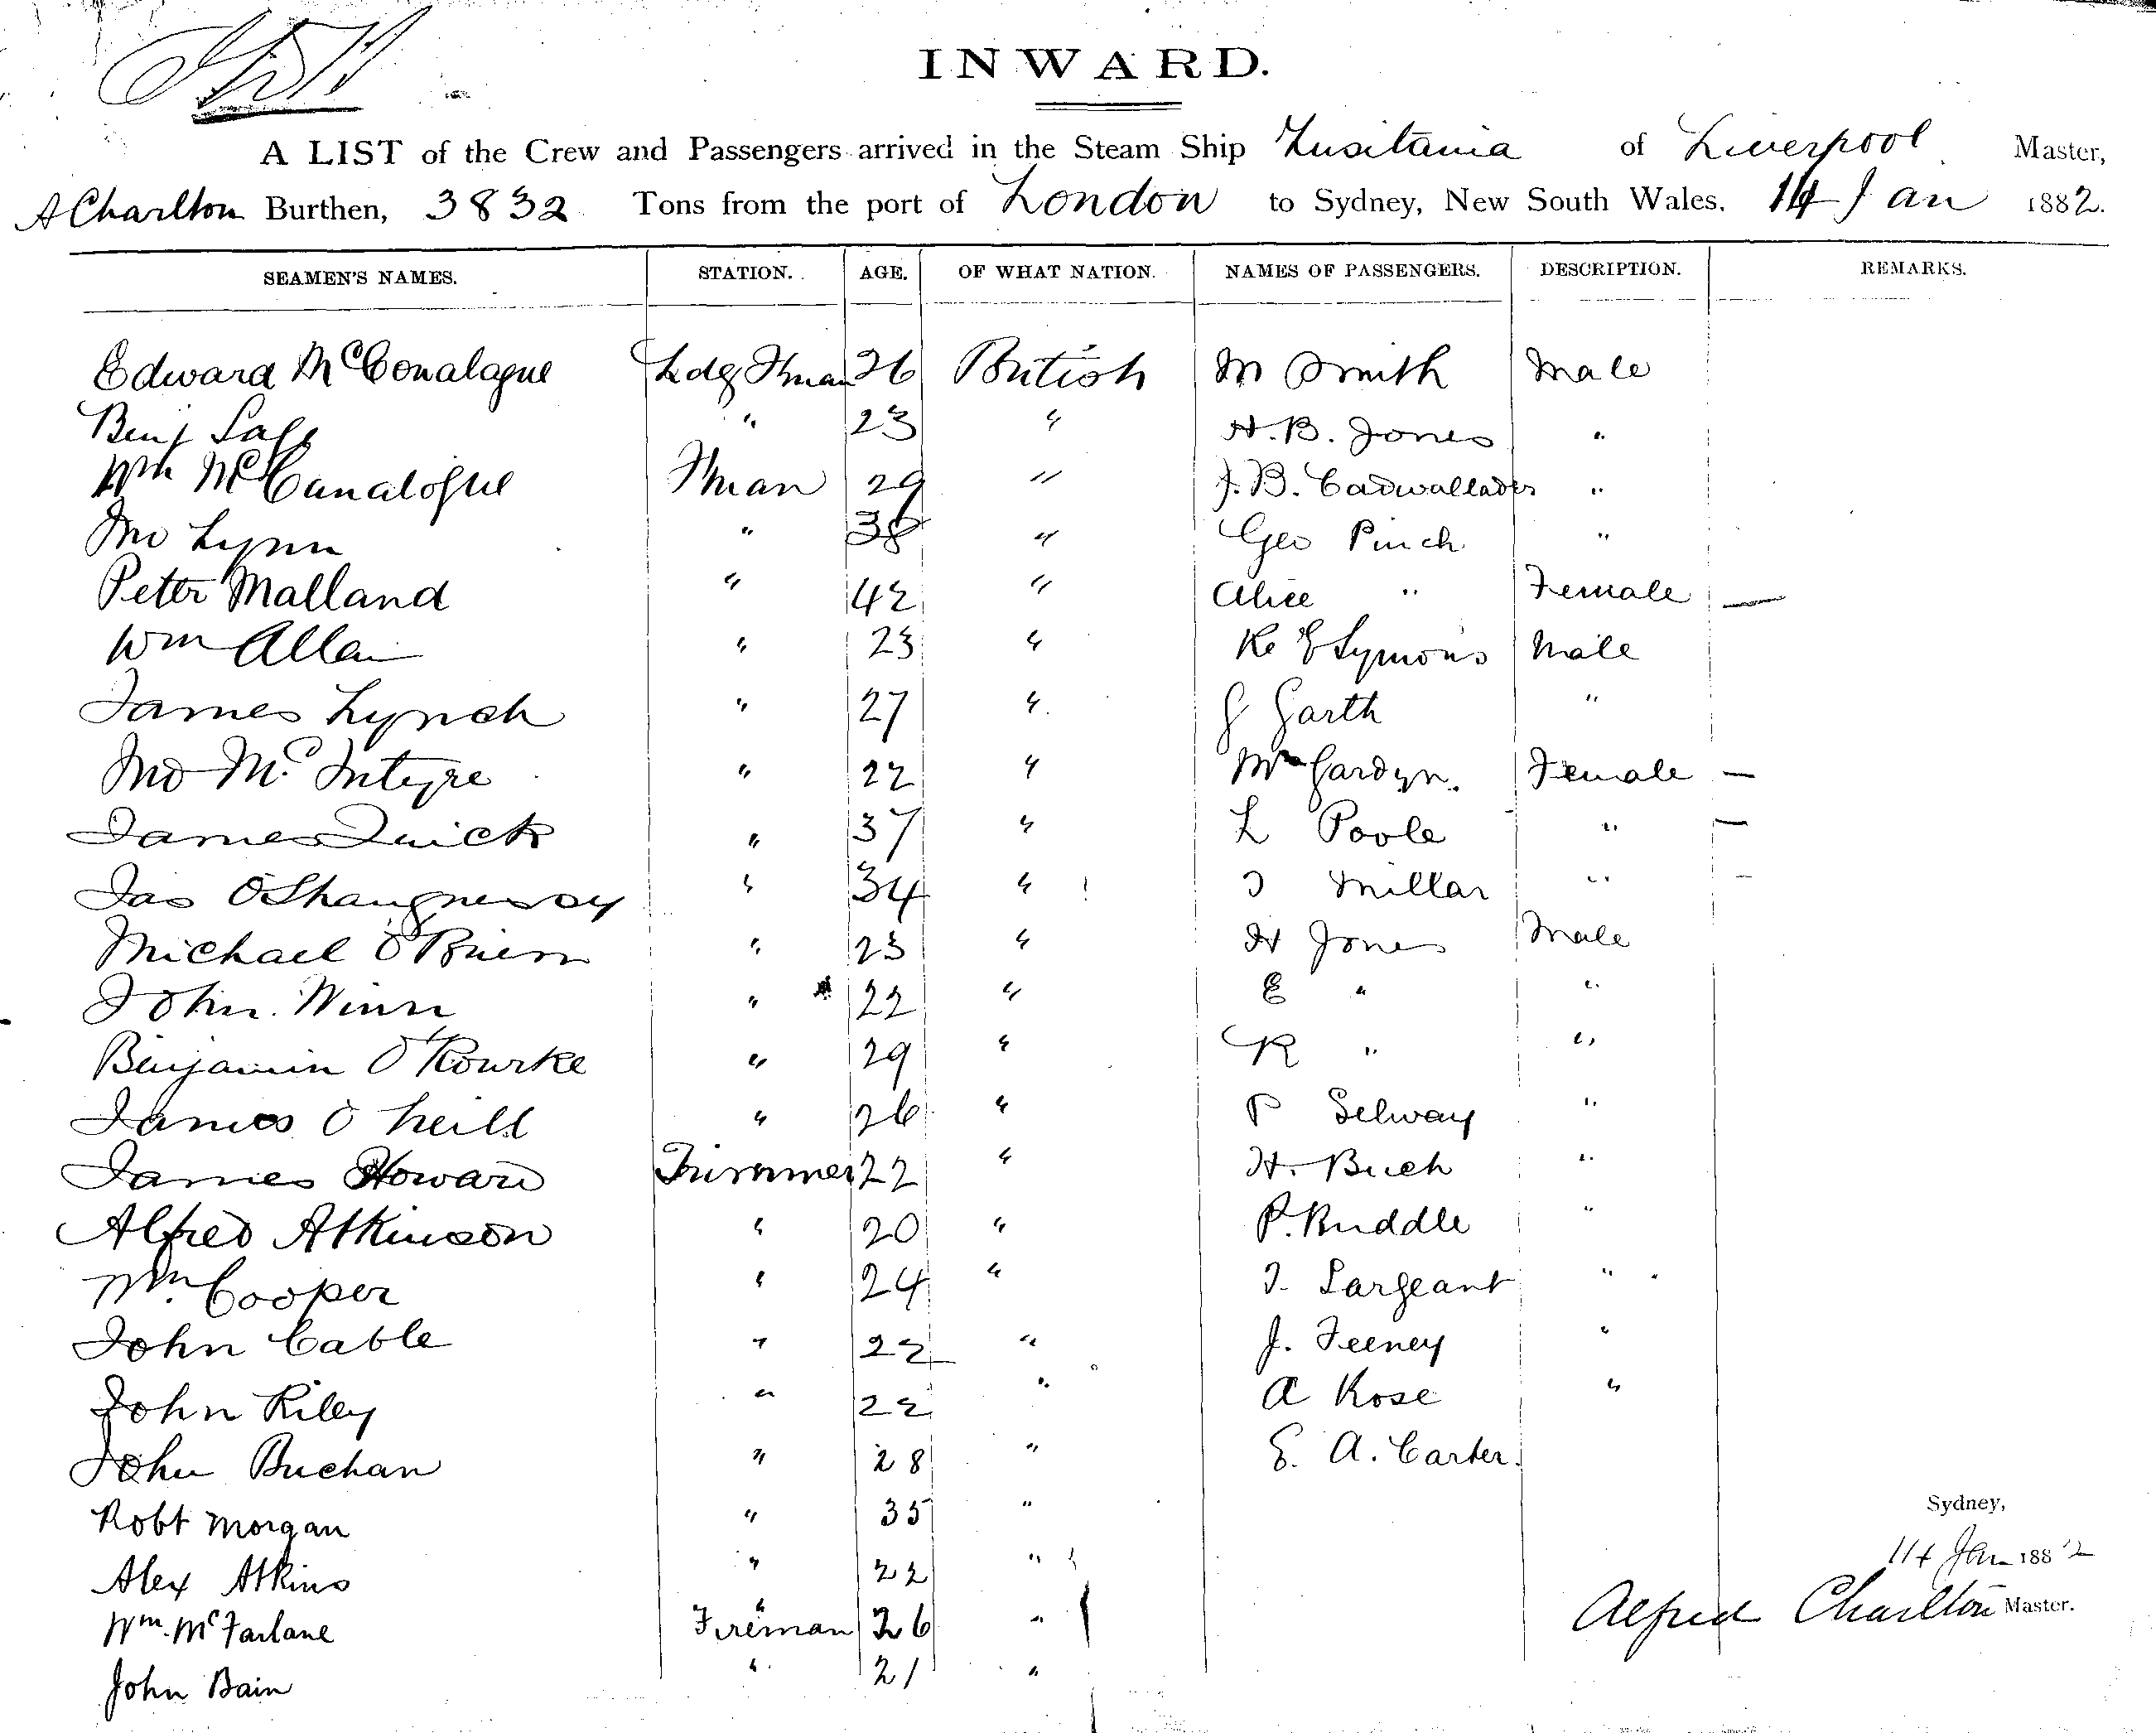 INWARD.
A LIST of the Crew and Passengers arrived in the Steam Ship Lusitania of Liverpool Master,
A Charlton Burthen, 3832 Tons from the port of London to Sydney, New South Wales. 14 Jan 1882.
SEAMEN'S NAMES. STATION. AGE. OF WHAT NATION. NAMES OF PASSENGERS. DESCRIPTION. REMARKS.
Edward McConalague Ldg Fman 26 British M Smith Male
Benj 23 " H. B. Jones "
Wm McCanalogue Fman 29 " J. B. Cadwallader "
Jno Lynn " 38 " Geo Pinch "
Peter Malland " 42 " Alice " Female —
Wm Allan " 23 " Symons Male
James Lynch " 27 " G Garth "
Jno McIntyre " 22 " Female —
James Quick " 37 " L Poole " —
Jas O'Shaugnessy " 34 " Millar " —
Michael O'Brien " 23 " H Jones Male
John Winn " 22 " E " "
Benjamin O'Rourke " 29 " R " "
James O'Neill " 26 " P Selway "
James Howard Trimmer 22 " H. Buch "
Alfred Atkinson " 20 " P. Ruddle "
Wm Cooper " 24 " Sargeant "
John Cable " 22 " J. Feeney "
John Riley " 22 " A Rose "
John Buchan " 28 " E. A. Carter.
Robt Morgan " 35 "
Alex Atkins " 22 "
Wm. McFarlane Fireman 26 "
John Bain " 21 "
Sydney,
14 Jan 1882
Alfred Charlton Master.